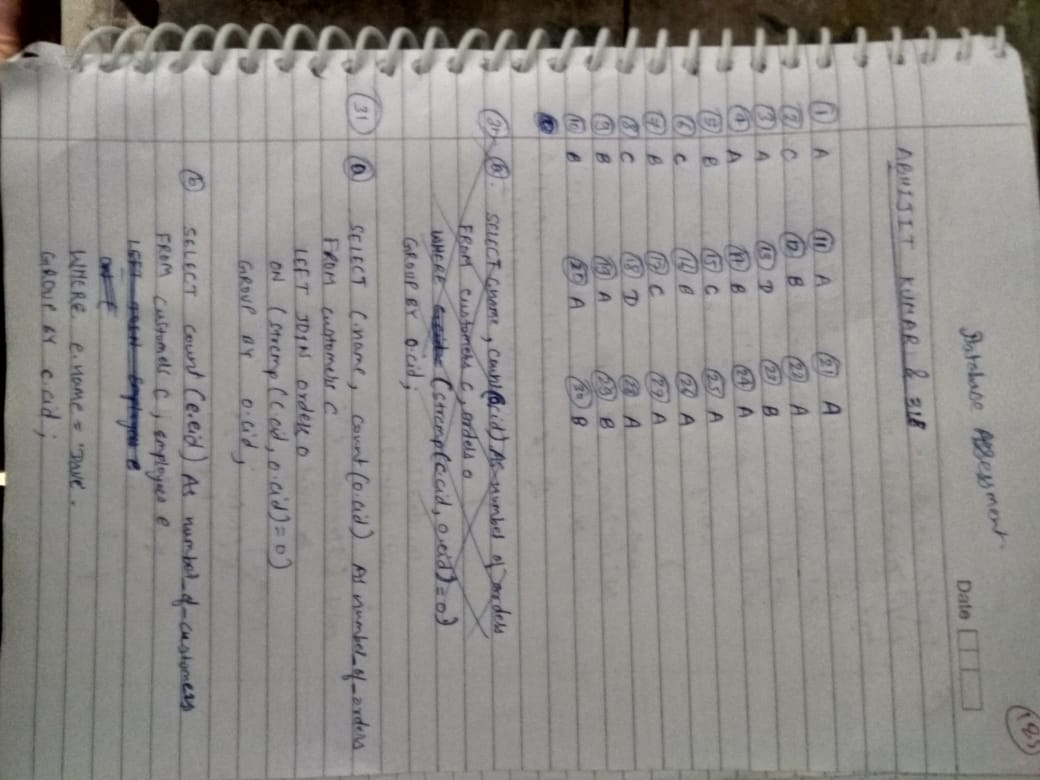 185
Database Assessment.
Date
ABHIJIT KUMAR & 318
1 A 11 A 21 A
2 C 12 B 22 A
3 A 13 D 23 B
4 A 14 B 24 A
5 B 15 C 25 A
6 C 16 B 26 A
7 B 17 C 27 A
8 C 18 D 28 A
9 B 19 A 29 B
10 B 20 A 30 B
31 a. SELECT C.name, count(o.cid) As number of orders
FROM customers C, orders o
WHERE (strcmp(c.cid, o.cid)=0)
GROUP BY o.cid;
31 a SELECT C.name, count(o.cid) As number_of_orders
FROM customers C
LEFT JOIN orders o
ON (strcmp(C.cid, o.cid)=0)
GROUP BY o.cid;
b SELECT count(e.eid) As number_of_customers
FROM customers C, employees e
LEFT JOIN Employees e
WHERE e.name = 'Dave'.
GROUP BY c.cid;